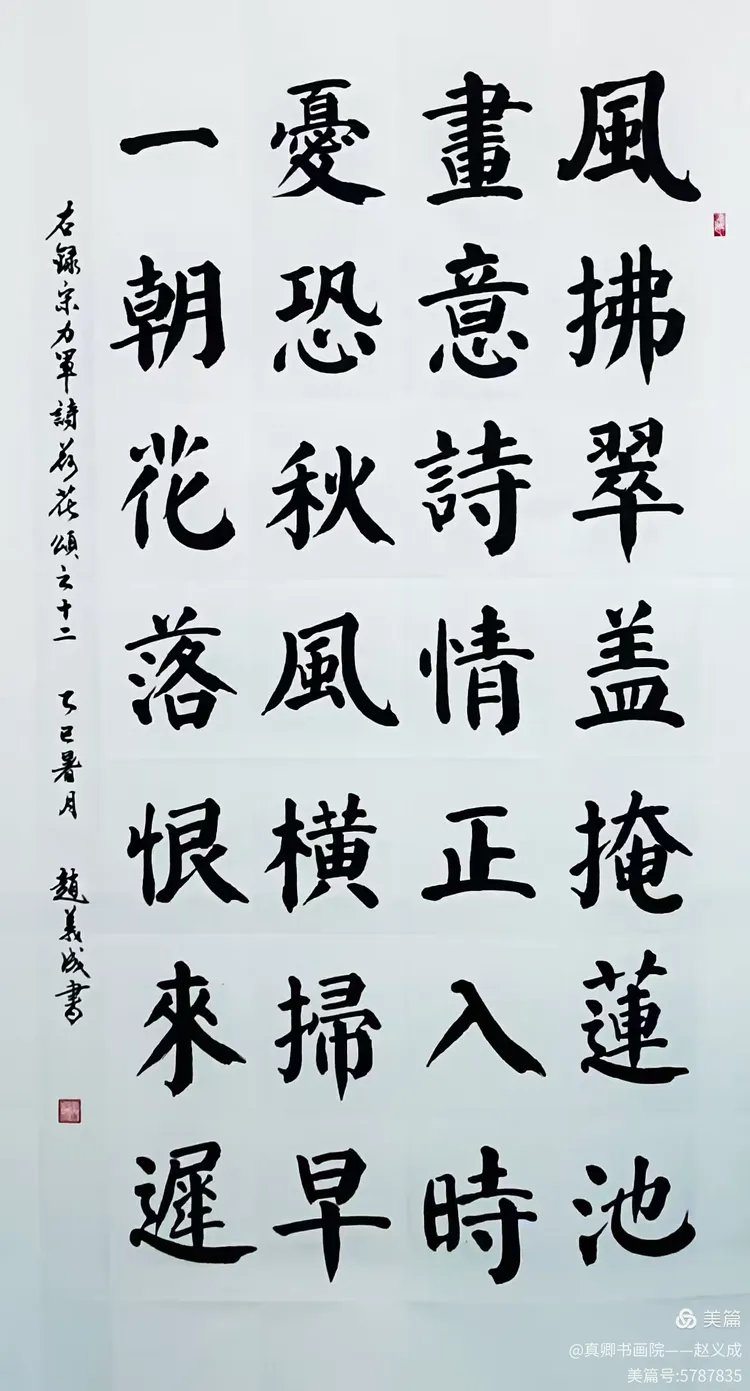 風拂翠盖掩蓮池
畫意詩情正入時
憂恐秋風橫掃早
一朝花落恨來遲
右録宗力軍詩荷花頌之十二 乙巳暑月 趙義成書
美篇
@真卿书画院——赵义成
美篇号:5787835